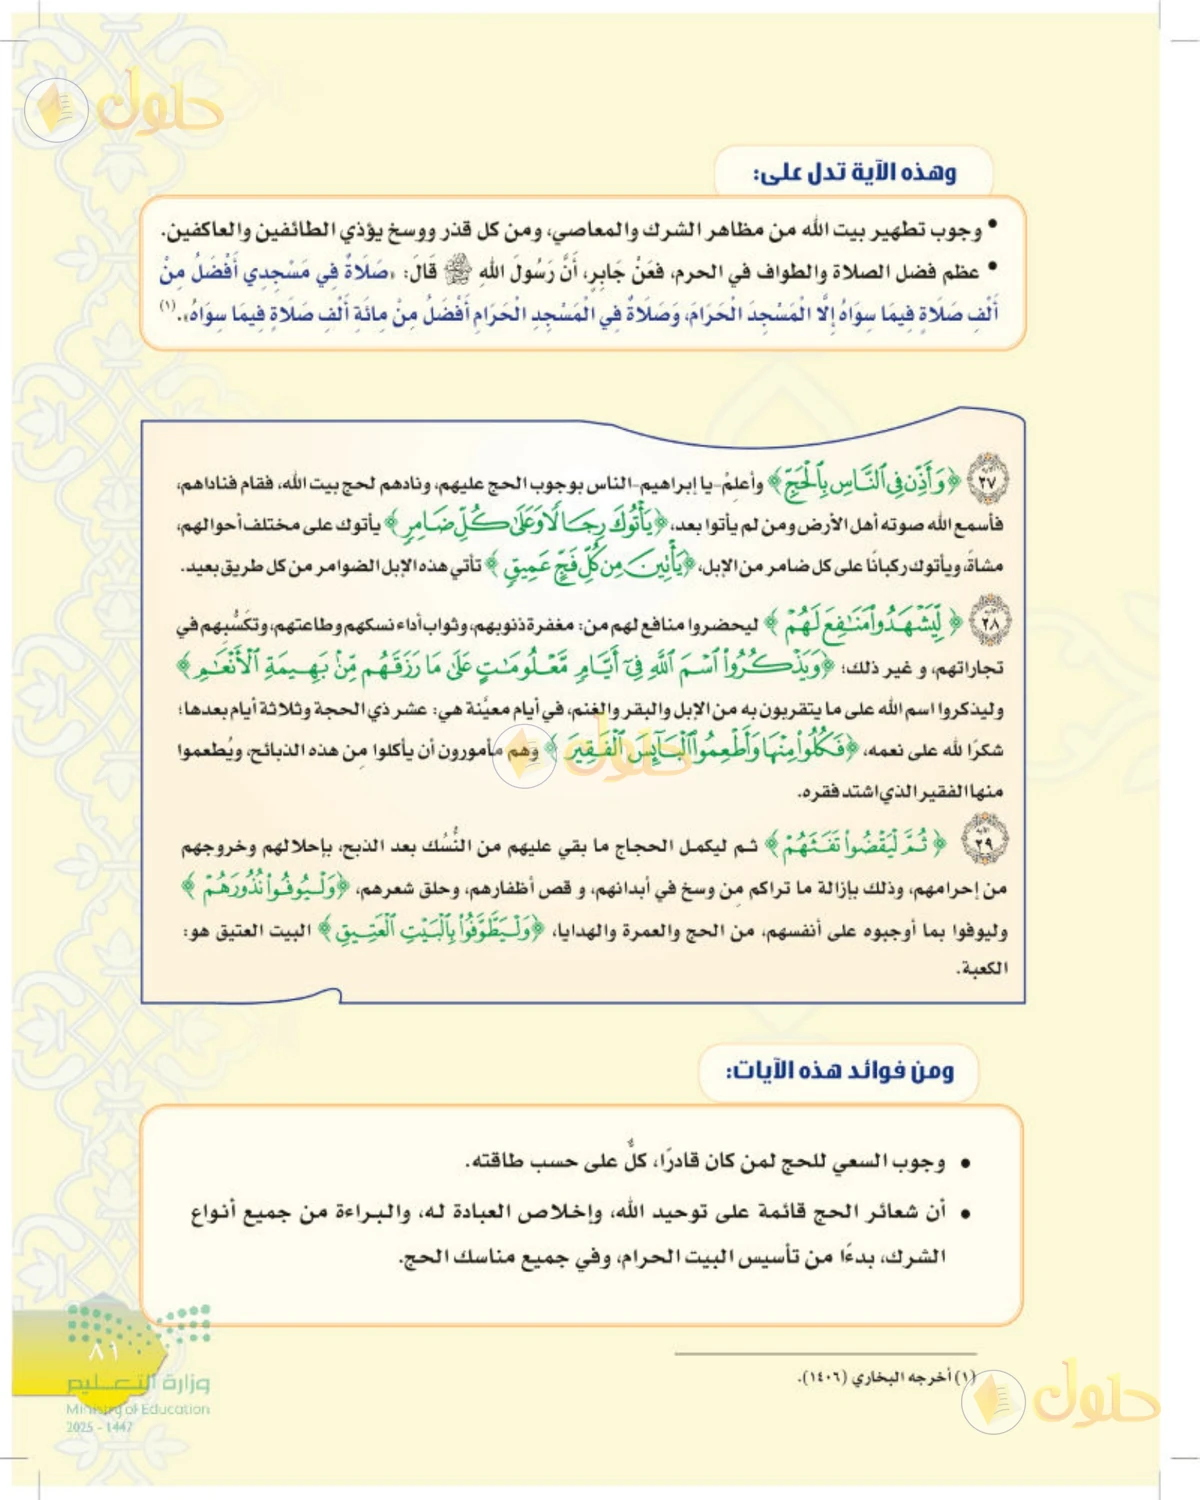 حلول
وهذه الآية تدل على:
• وجوب تطهير بيت الله من مظاهر الشرك والمعاصي، ومن كل قذر ووسخ يؤذي الطائفين والعاكفين.
• عظم فضل الصلاة والطواف في الحرم، فعَنْ جَابِرٍ، أَنَّ رَسُولَ اللهِ ﷺ قَالَ: «صَلَاةٌ فِي مَسْجِدِي أَفْضَلُ مِنْ
أَلْفِ صَلَاةٍ فِيمَا سِوَاهُ إِلَّا الْمَسْجِدَ الْحَرَامَ، وَصَلَاةٌ فِي الْمَسْجِدِ الْحَرَامِ أَفْضَلُ مِنْ مِائَةِ أَلْفِ صَلَاةٍ فِيمَا سِوَاهُ».(١)
الآية ٢٧ ﴿وَأَذِّن فِي ٱلنَّاسِ بِٱلْحَجِّ﴾ وأعلِمْ-يا إبراهيم-الناس بوجوب الحج عليهم، ونادهم لحج بيت الله، فقام فناداهم،
فأسمع الله صوته أهل الأرض ومن لم يأتوا بعد، ﴿يَأْتُوكَ رِجَالًا وَعَلَىٰ كُلِّ ضَامِرٍ﴾ يأتوك على مختلف أحوالهم،
مشاة، ويأتوك ركبانًا على كل ضامر من الإبل، ﴿يَأْتِينَ مِن كُلِّ فَجٍّ عَمِيقٍ﴾ تأتي هذه الإبل الضوامر من كل طريق بعيد.
الآية ٢٨ ﴿لِّيَشْهَدُوا۟ مَنَٰفِعَ لَهُمْ﴾ ليحضروا منافع لهم من: مغفرة ذنوبهم، وثواب أداء نسكهم وطاعتهم، وتكَسُّبهم في
تجاراتهم، و غير ذلك؛ ﴿وَيَذْكُرُوا۟ ٱسْمَ ٱللَّهِ فِىٓ أَيَّامٍ مَّعْلُومَٰتٍ عَلَىٰ مَا رَزَقَهُم مِّنۢ بَهِيمَةِ ٱلْأَنْعَٰمِ﴾
وليذكروا اسم الله على ما يتقربون به من الإبل والبقر والغنم، في أيام معيَّنة هي: عشر ذي الحجة وثلاثة أيام بعدها؛
شكرًا لله على نعمه، ﴿فَكُلُوا۟ مِنْهَا وَأَطْعِمُوا۟ ٱلْبَآئِسَ ٱلْفَقِيرَ﴾ وهم مأمورون أن يأكلوا مِن هذه الذبائح، ويُطعموا
منها الفقير الذي اشتد فقره.
الآية ٢٩ ﴿ثُمَّ لْيَقْضُوا۟ تَفَثَهُمْ﴾ ثم ليكمل الحجاج ما بقي عليهم من النُّسُك بعد الذبح، بإحلالهم وخروجهم
من إحرامهم، وذلك بإزالة ما تراكم مِن وسخ في أبدانهم، و قص أظفارهم، وحلق شعرهم، ﴿وَلْيُوفُوا۟ نُذُورَهُمْ﴾
وليوفوا بما أوجبوه على أنفسهم، من الحج والعمرة والهدايا، ﴿وَلْيَطَّوَّفُوا۟ بِٱلْبَيْتِ ٱلْعَتِيقِ﴾ البيت العتيق هو:
الكعبة.
حلول
ومن فوائد هذه الآيات:
• وجوب السعي للحج لمن كان قادرًا، كلٌّ على حسب طاقته.
• أن شعائر الحج قائمة على توحيد الله، وإخلاص العبادة له، والبراءة من جميع أنواع
الشرك، بدءًا من تأسيس البيت الحرام، وفي جميع مناسك الحج.
(١) أخرجه البخاري (١٤٠٦).
٨١
وزارة التعليم
Ministry of Education
2025 - 1447
حلول